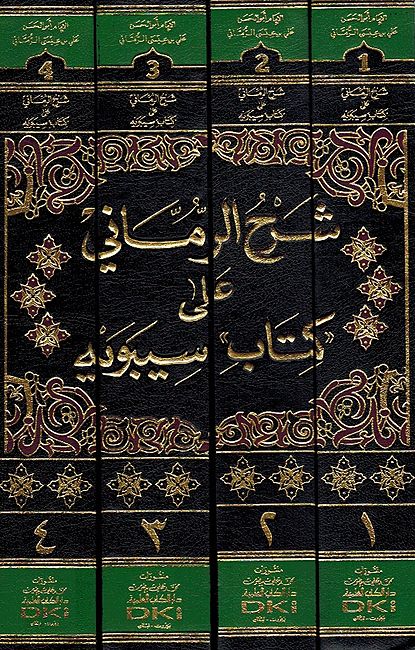 الإمام أبو الحسن
علي بن عيسى الرماني
1
شرح الرماني
على
كتاب سيبويه
١
منشورات
محمد علي بيضون
دار الكتب العلمية
DKi
بيروت - لبنان
الإمام أبو الحسن
علي بن عيسى الرماني
2
شرح الرماني
على
كتاب سيبويه
٢
منشورات
محمد علي بيضون
دار الكتب العلمية
DKi
بيروت - لبنان
الإمام أبو الحسن
علي بن عيسى الرماني
3
شرح الرماني
على
كتاب سيبويه
٣
منشورات
محمد علي بيضون
دار الكتب العلمية
DKi
بيروت - لبنان
الإمام أبو الحسن
علي بن عيسى الرماني
4
شرح الرماني
على
كتاب سيبويه
٤
منشورات
محمد علي بيضون
دار الكتب العلمية
DKi
بيروت - لبنان
شَرْحُ الرُّمَّاني
عَلى
«كِتَابِ» سِيبَوَيْهِ